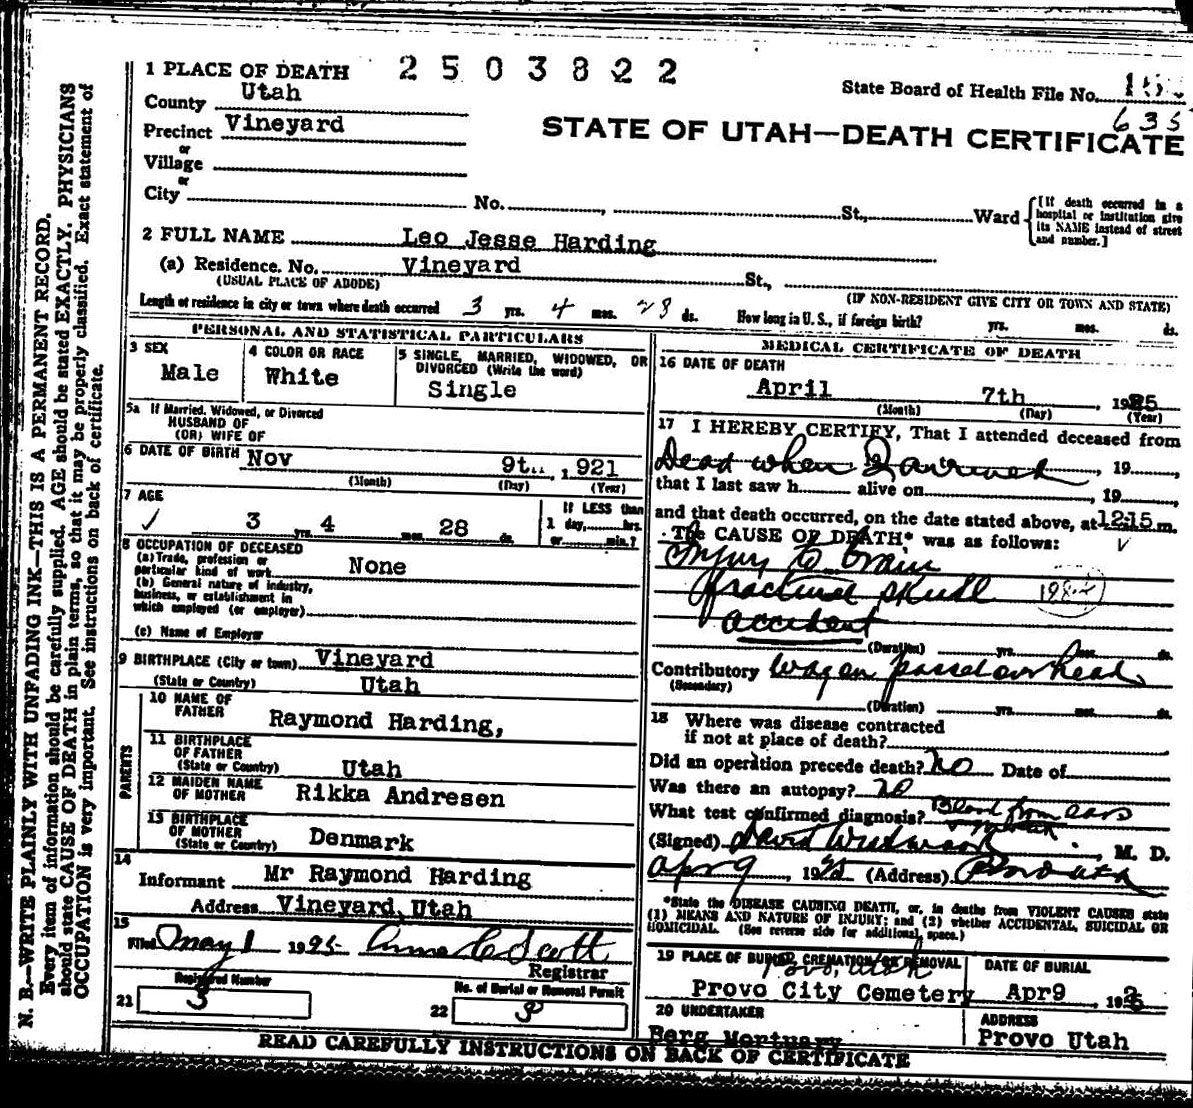 1 PLACE OF DEATH 2503822
State Board of Health File No.
635
County Utah
STATE OF UTAH—DEATH CERTIFICATE
Precinct Vineyard
or
Village
or
City No. St., Ward
[If death occurred in a hospital or institution give its NAME instead of street and number.]
2 FULL NAME Leo Jesse Harding
(a) Residence. No. Vineyard St.,
(USUAL PLACE OF ABODE) (IF NON-RESIDENT GIVE CITY OR TOWN AND STATE)
Length of residence in city or town where death occurred 3 yrs. 4 mos. 28 ds. How long in U. S., if foreign birth? yrs. mos. ds.
PERSONAL AND STATISTICAL PARTICULARS
3 SEX
Male
4 COLOR OR RACE
White
5 SINGLE, MARRIED, WIDOWED, OR
DIVORCED (Write the word)
Single
5a If Married, Widowed, or Divorced
HUSBAND OF
(OR) WIFE OF
6 DATE OF BIRTH Nov 9t , 1921
(Month) (Day) (Year)
7 AGE
3 yrs. 4 mos. 28 ds.
If LESS than
1 day, hrs.
or min.?
8 OCCUPATION OF DECEASED
(a) Trade, profession or
particular kind of work None
(b) General nature of industry,
business, or establishment in
which employed (or employer)
(c) Name of Employer
9 BIRTHPLACE (City or town) Vineyard
(State or Country) Utah
PARENTS
10 NAME OF
FATHER Raymond Harding,
11 BIRTHPLACE
OF FATHER
(State or Country) Utah
12 MAIDEN NAME
OF MOTHER Rikka Andresen
13 BIRTHPLACE
OF MOTHER
(State or Country) Denmark
14
Informant Mr Raymond Harding
Address Vineyard, Utah
15
Filed May 1 1925 C Scott
Registrar
Registered Number
21 3
No. of Burial or Removal Permit
22 3
MEDICAL CERTIFICATE OF DEATH
16 DATE OF DEATH
April 7th , 1925
(Month) (Day) (Year)
17 I HEREBY CERTIFY, That I attended deceased from
Dead when I arrived , 19 ,
that I last saw h alive on , 19 ,
and that death occurred, on the date stated above, at 1215 m.
The CAUSE OF DEATH* was as follows:
Injury to brain
fractured skull
accident
(Duration) yrs. mos. ds.
Contributory Wagon passed over head
(Secondary)
(Duration) yrs. mos. ds.
18 Where was disease contracted
if not at place of death?
Did an operation precede death? No Date of
Was there an autopsy? no
What test confirmed diagnosis? Blood from ears
(Signed) David Westwood , M. D.
Apr 9 , 1925 (Address) Provo Utah
*State the DISEASE CAUSING DEATH, or, in deaths from VIOLENT CAUSES state
(1) MEANS AND NATURE OF INJURY; and (2) whether ACCIDENTAL, SUICIDAL OR
HOMICIDAL. (See reverse side for additional space.)
19 PLACE OF BURIAL, CREMATION, OR REMOVAL
Provo, Utah
Provo City Cemetery
DATE OF BURIAL
Apr9 , 1925
20 UNDERTAKER
Berg Mortuary
ADDRESS
Provo Utah
READ CAREFULLY INSTRUCTIONS ON BACK OF CERTIFICATE
N. B.—WRITE PLAINLY WITH UNFADING INK—THIS IS A PERMANENT RECORD.
Every item of information should be carefully supplied. AGE should be stated EXACTLY. PHYSICIANS
should state CAUSE OF DEATH in plain terms, so that it may be properly classified. Exact statement of
OCCUPATION is very important. See instructions on back of certificate.